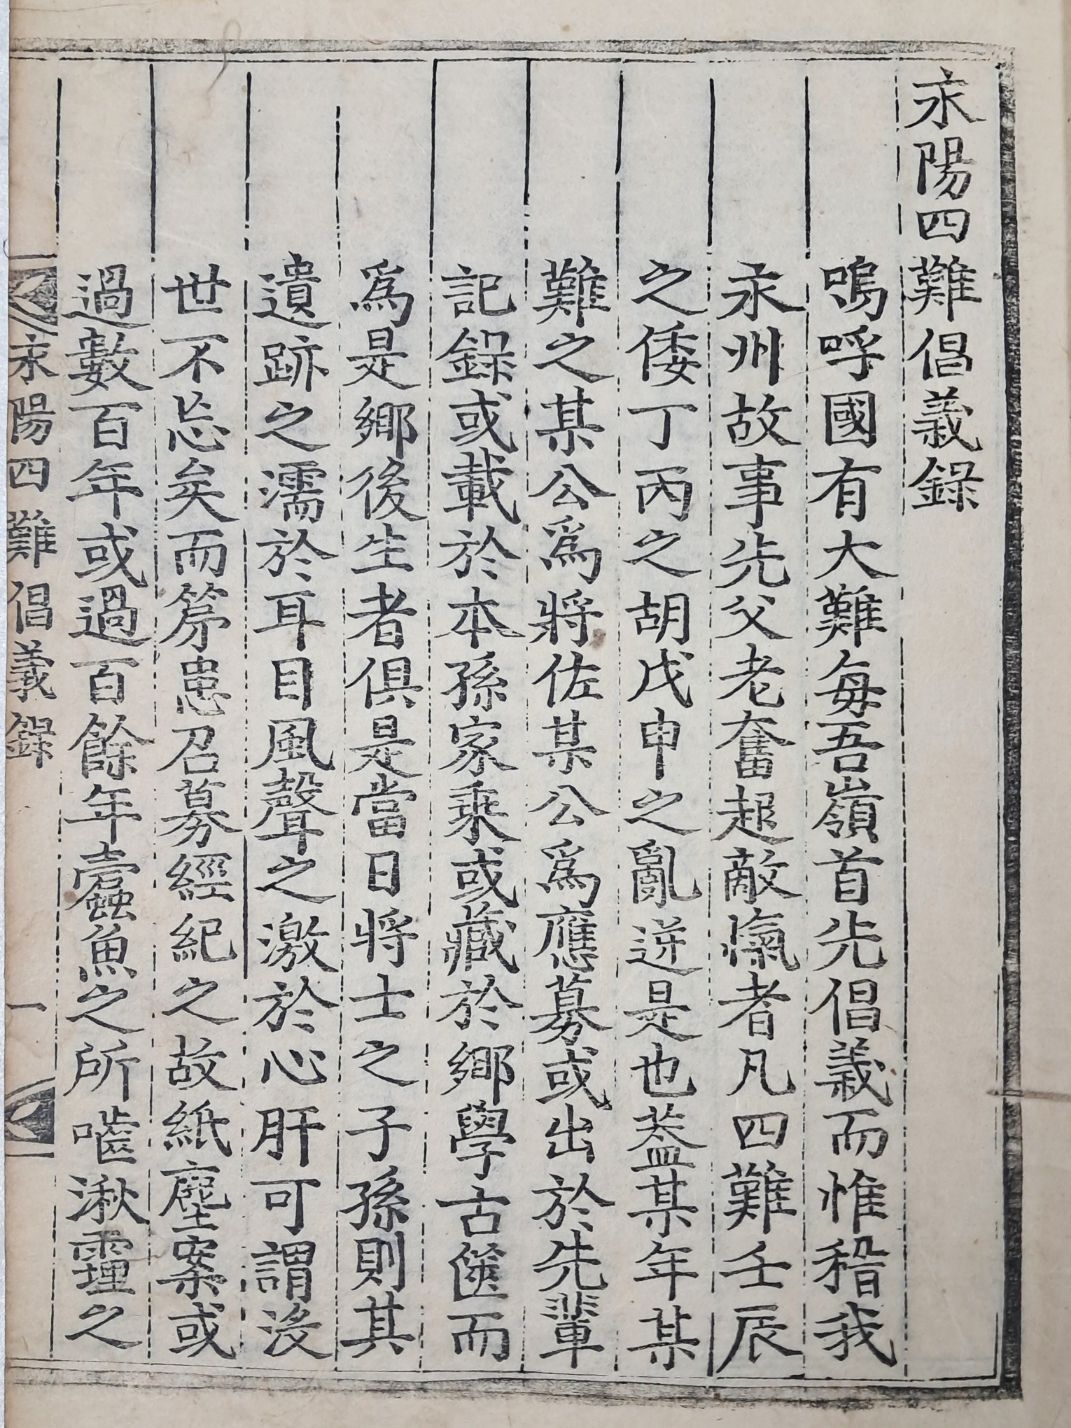 永陽四難倡義錄
嗚呼國有大難每吾嶺首先倡義而惟稽我
永州故事先父老奮起敵愾者凡四難壬辰
之倭丁丙之胡戊申之亂逆是也蓋某年某
難之某公爲將佐某公爲應募或出於先輩
記錄或載於本孫家乘或藏於鄉學古篋而
爲是鄉後生者俱是當日將士之子孫則其
遺跡之濡於耳目風聲之激於心肝可謂沒
世不忘矣而第患召募經紀之故紙塵案或
過數百年或過百餘年蠹魚之所嚙湫霾之
永陽四難倡義錄 一